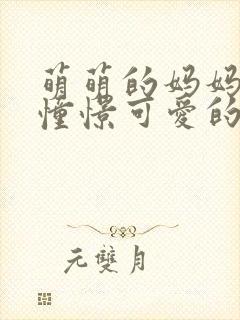 萌萌的妈妈
憧憬可爱的
元雙月